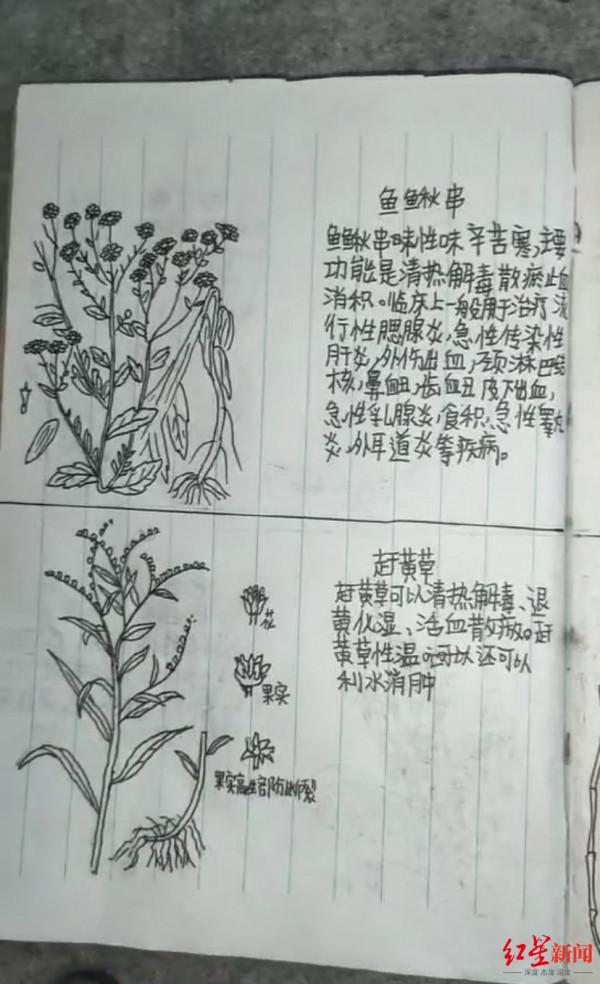 鱼鳅串
鱼鳅串味性味辛苦寒,主要
功能是清热解毒散瘀止血
消积。临床上一般用于治疗流
行性腮腺炎,急性传染性
肝炎,外伤出血,颈淋巴结
核,鼻血,齿血皮下出血,
急性乳腺炎,食积,急性睾丸
炎,外耳道炎等疾病。
赶黄草
赶黄草可以清热解毒、退
黄化湿、活血散瘀。赶
黄草性温 可以还可以
利水消肿
花
果实
果实
红星新闻
深度 态度 温度